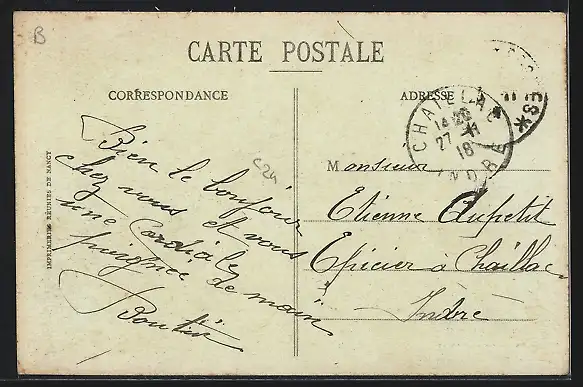 B
CARTE POSTALE
CORRESPONDANCE
ADRESSE
CHAILLAC
14 20
27 -11
18
INDRE
Bien le bonjour
chez vous et vous
une Cordiale
poignée de main
c24
Monsieur
Etienne Dupetit
Epicier à Chaillac
Indre
IMPRIMERIES RÉUNIES DE NANCY